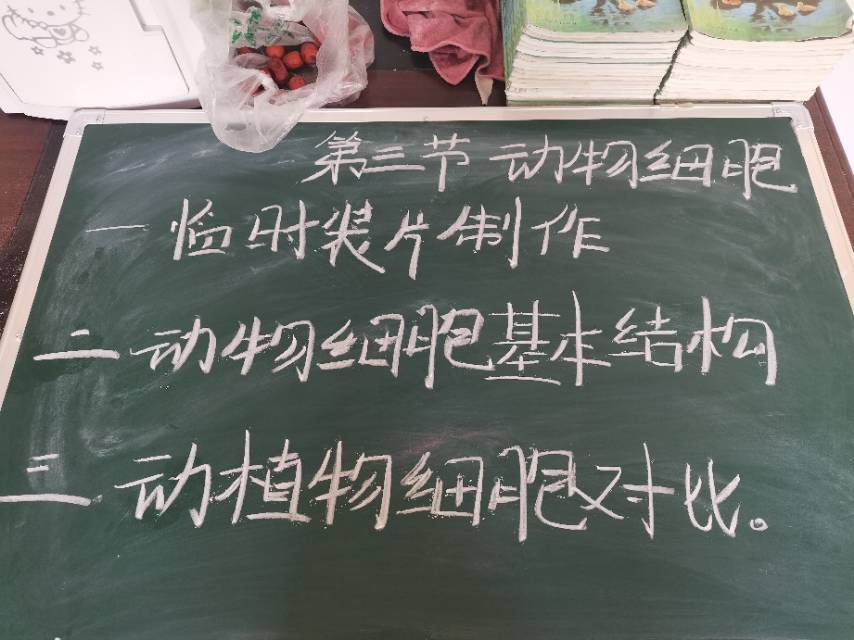 第三节 动物细胞
一 临时装片制作
二 动物细胞基本结构
三 动植物细胞对比。